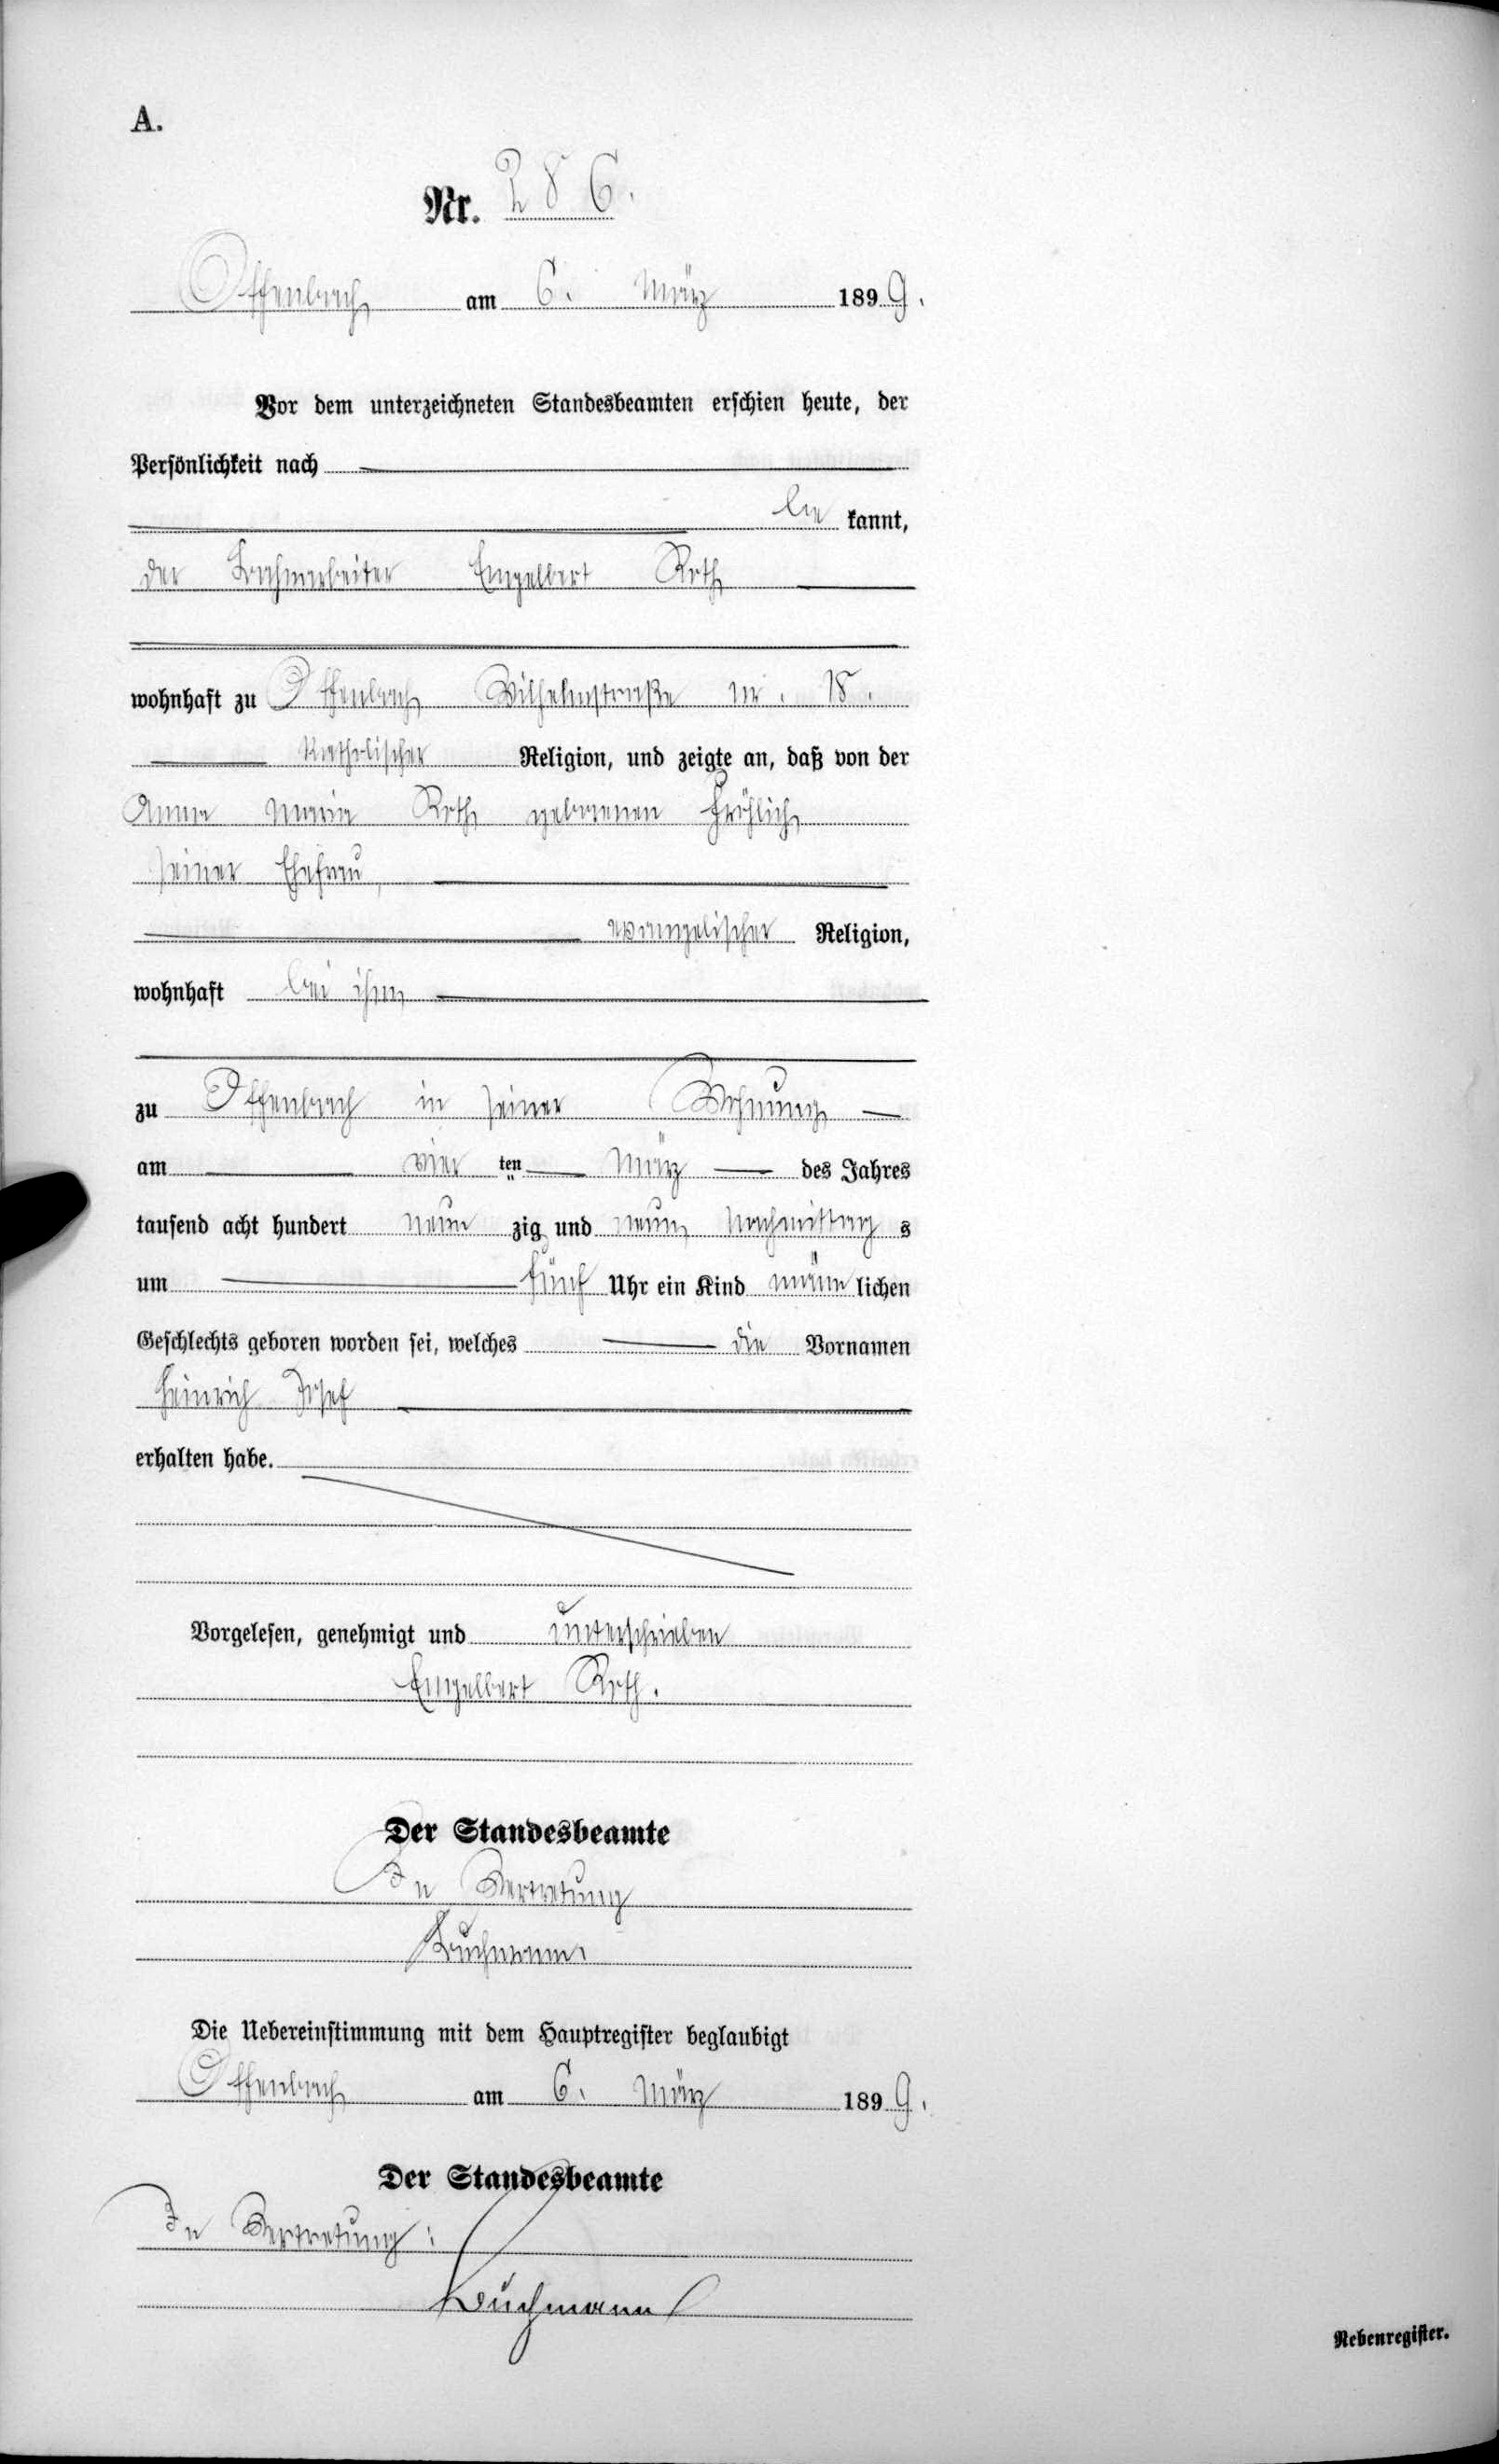 A.
Nr. 286.
Offenbach am 6. März 1899.
Vor dem unterzeichneten Standesbeamten erschien heute, der
Persönlichkeit nach
be kannt,
der Engelbert Roth
wohnhaft zu Offenbach Wilhelmstraße nr. 18.
katholischer Religion, und zeigte an, daß von der
Anna Maria Roth geborenen Fröhlich
seiner Ehefrau,
evangelischer Religion,
wohnhaft bei ihm
zu Offenbach in seiner Wohnung
am vier ten März des Jahres
tausend acht hundert neun zig und neun Nachmittag s
um fünf Uhr ein Kind männ lichen
Geschlechts geboren worden sei, welches die Vornamen
Heinrich Josef
erhalten habe.
Vorgelesen, genehmigt und unterschrieben
Engelbert Roth.
Der Standesbeamte
In Vertretung
Die Uebereinstimmung mit dem Hauptregister beglaubigt
Offenbach am 6. März 1899.
Der Standesbeamte
In Vertretung:
Nebenregister.